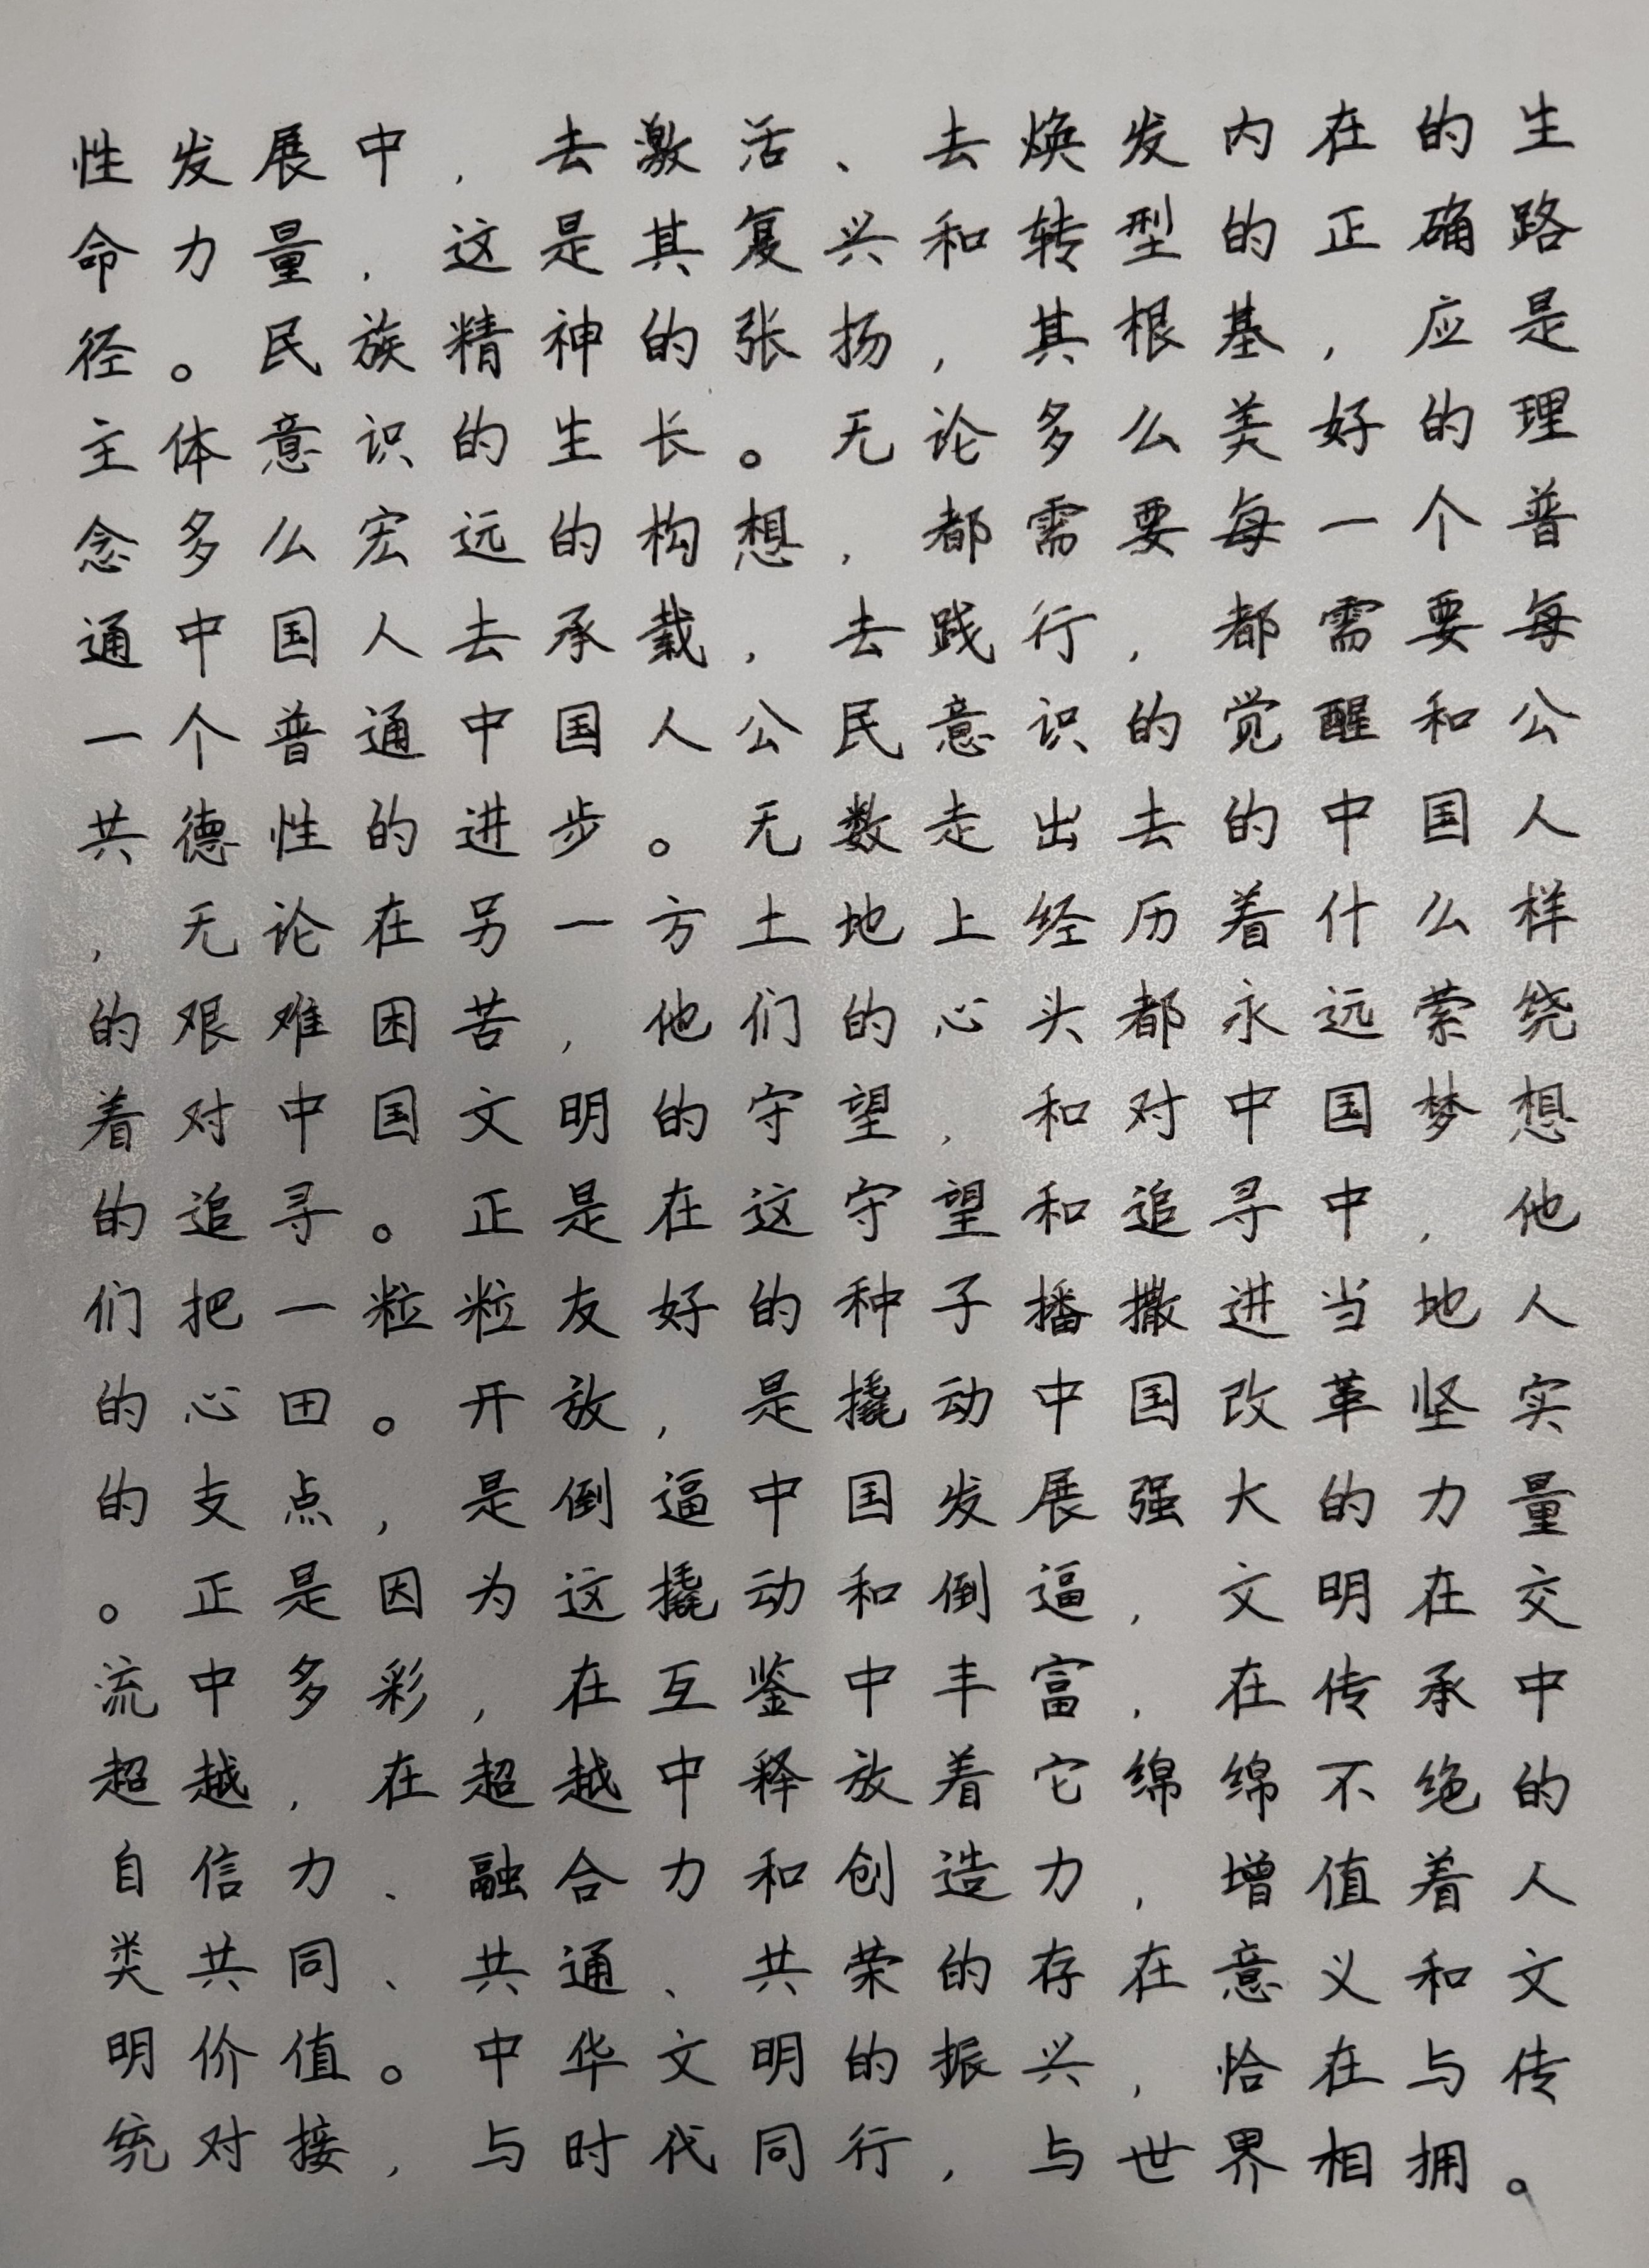 性发展中，去激活、去焕发内在的生
命力量，这是其复兴和转型的正确路
径。民族精神的张扬，其根基，应是
主体意识的生长。无论多么美好的理
念多么宏远的构想，都需要每一个普
通中国人去承载，去践行，都需要每
一个普通中国人公民意识的觉醒和公
共德性的进步。无数走出去的中国人
，无论在另一方土地上经历着什么样
的艰难困苦，他们的心头都永远萦绕
着对中国文明的守望，和对中国梦想
的追寻。正是在这守望和追寻中，他
们把一粒粒友好的种子播撒进当地人
的心田。开放，是撬动中国改革坚实
的支点，是倒逼中国发展强大的力量
。正是因为这撬动和倒逼，文明在交
流中多彩，在互鉴中丰富，在传承中
超越，在超越中释放着它绵绵不绝的
自信力、融合力和创造力，增值着人
类共同、共通、共荣的存在意义和文
明价值。中华文明的振兴，恰在与传
统对接，与时代同行，与世界相拥。